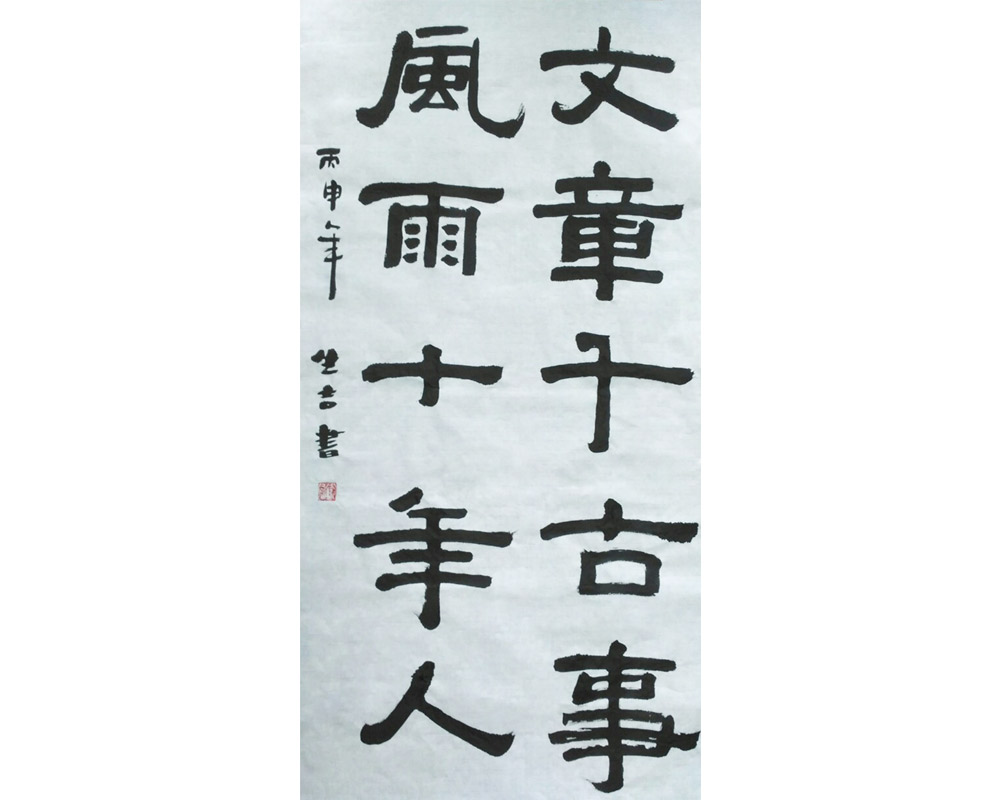 文章千古事
風雨十年人
丙申年
生吉書